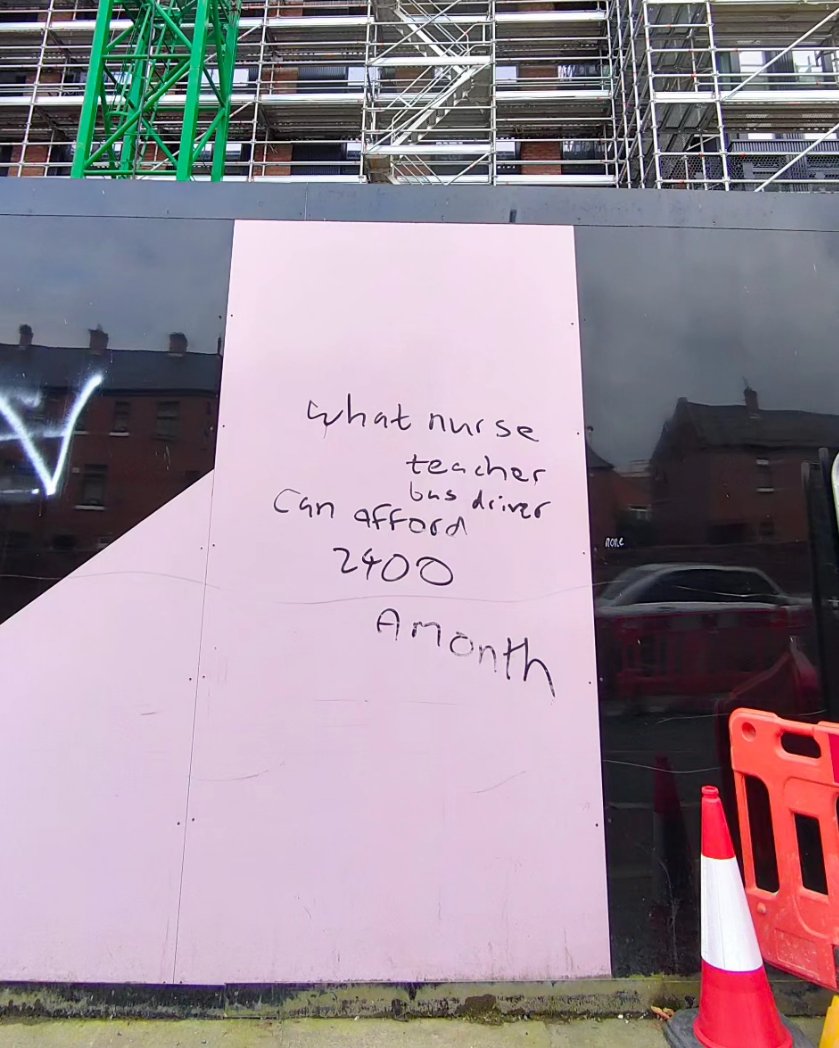 what nurse
teacher
bus driver
Can afford
2400
A month
none